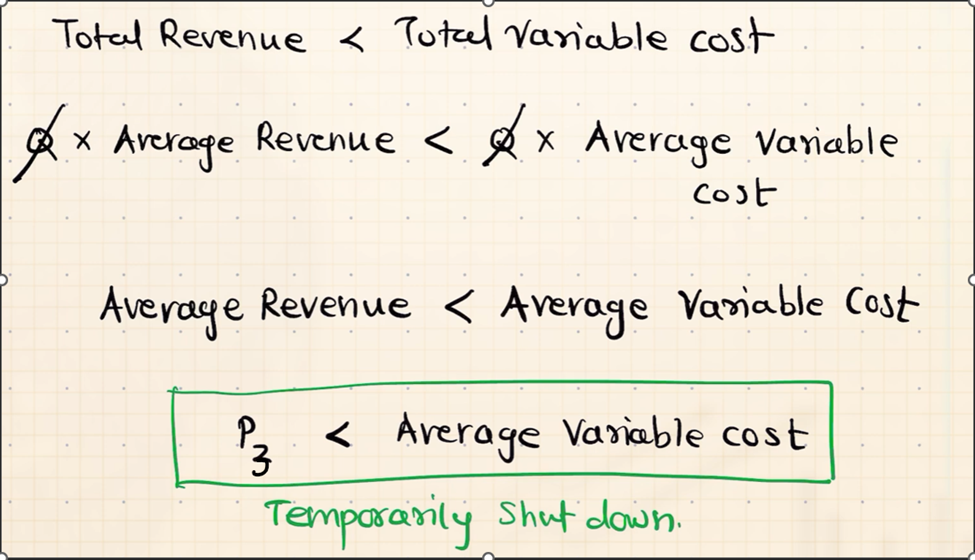 Total Revenue < Total Variable cost
Q × Average Revenue < Q × Average Variable
cost
Average Revenue < Average Variable Cost
P3 < Average Variable cost
Temporarily Shut down.